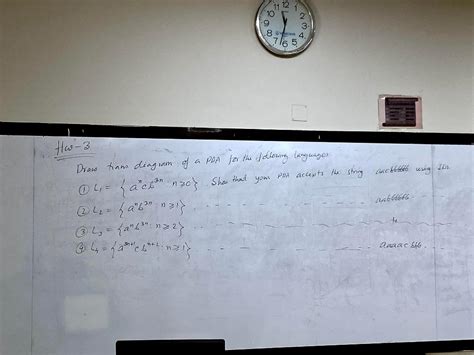 12
11
1
10
2
9
3
8
4
7
5
6
HW-3
Draw trans diagram of a PDA for the following languages
① L₁ = { aⁿcb³ⁿ : n≥0} Show that your PDA accepts the string aacbbbbbb using IDs
② L₂ = { aⁿb³ⁿ : n≥1} aabbbbbb
③ L₃ = {aⁿb³ⁿ : n≥2} to
④ L₄ = { cbⁿ⁺² : n≥1}